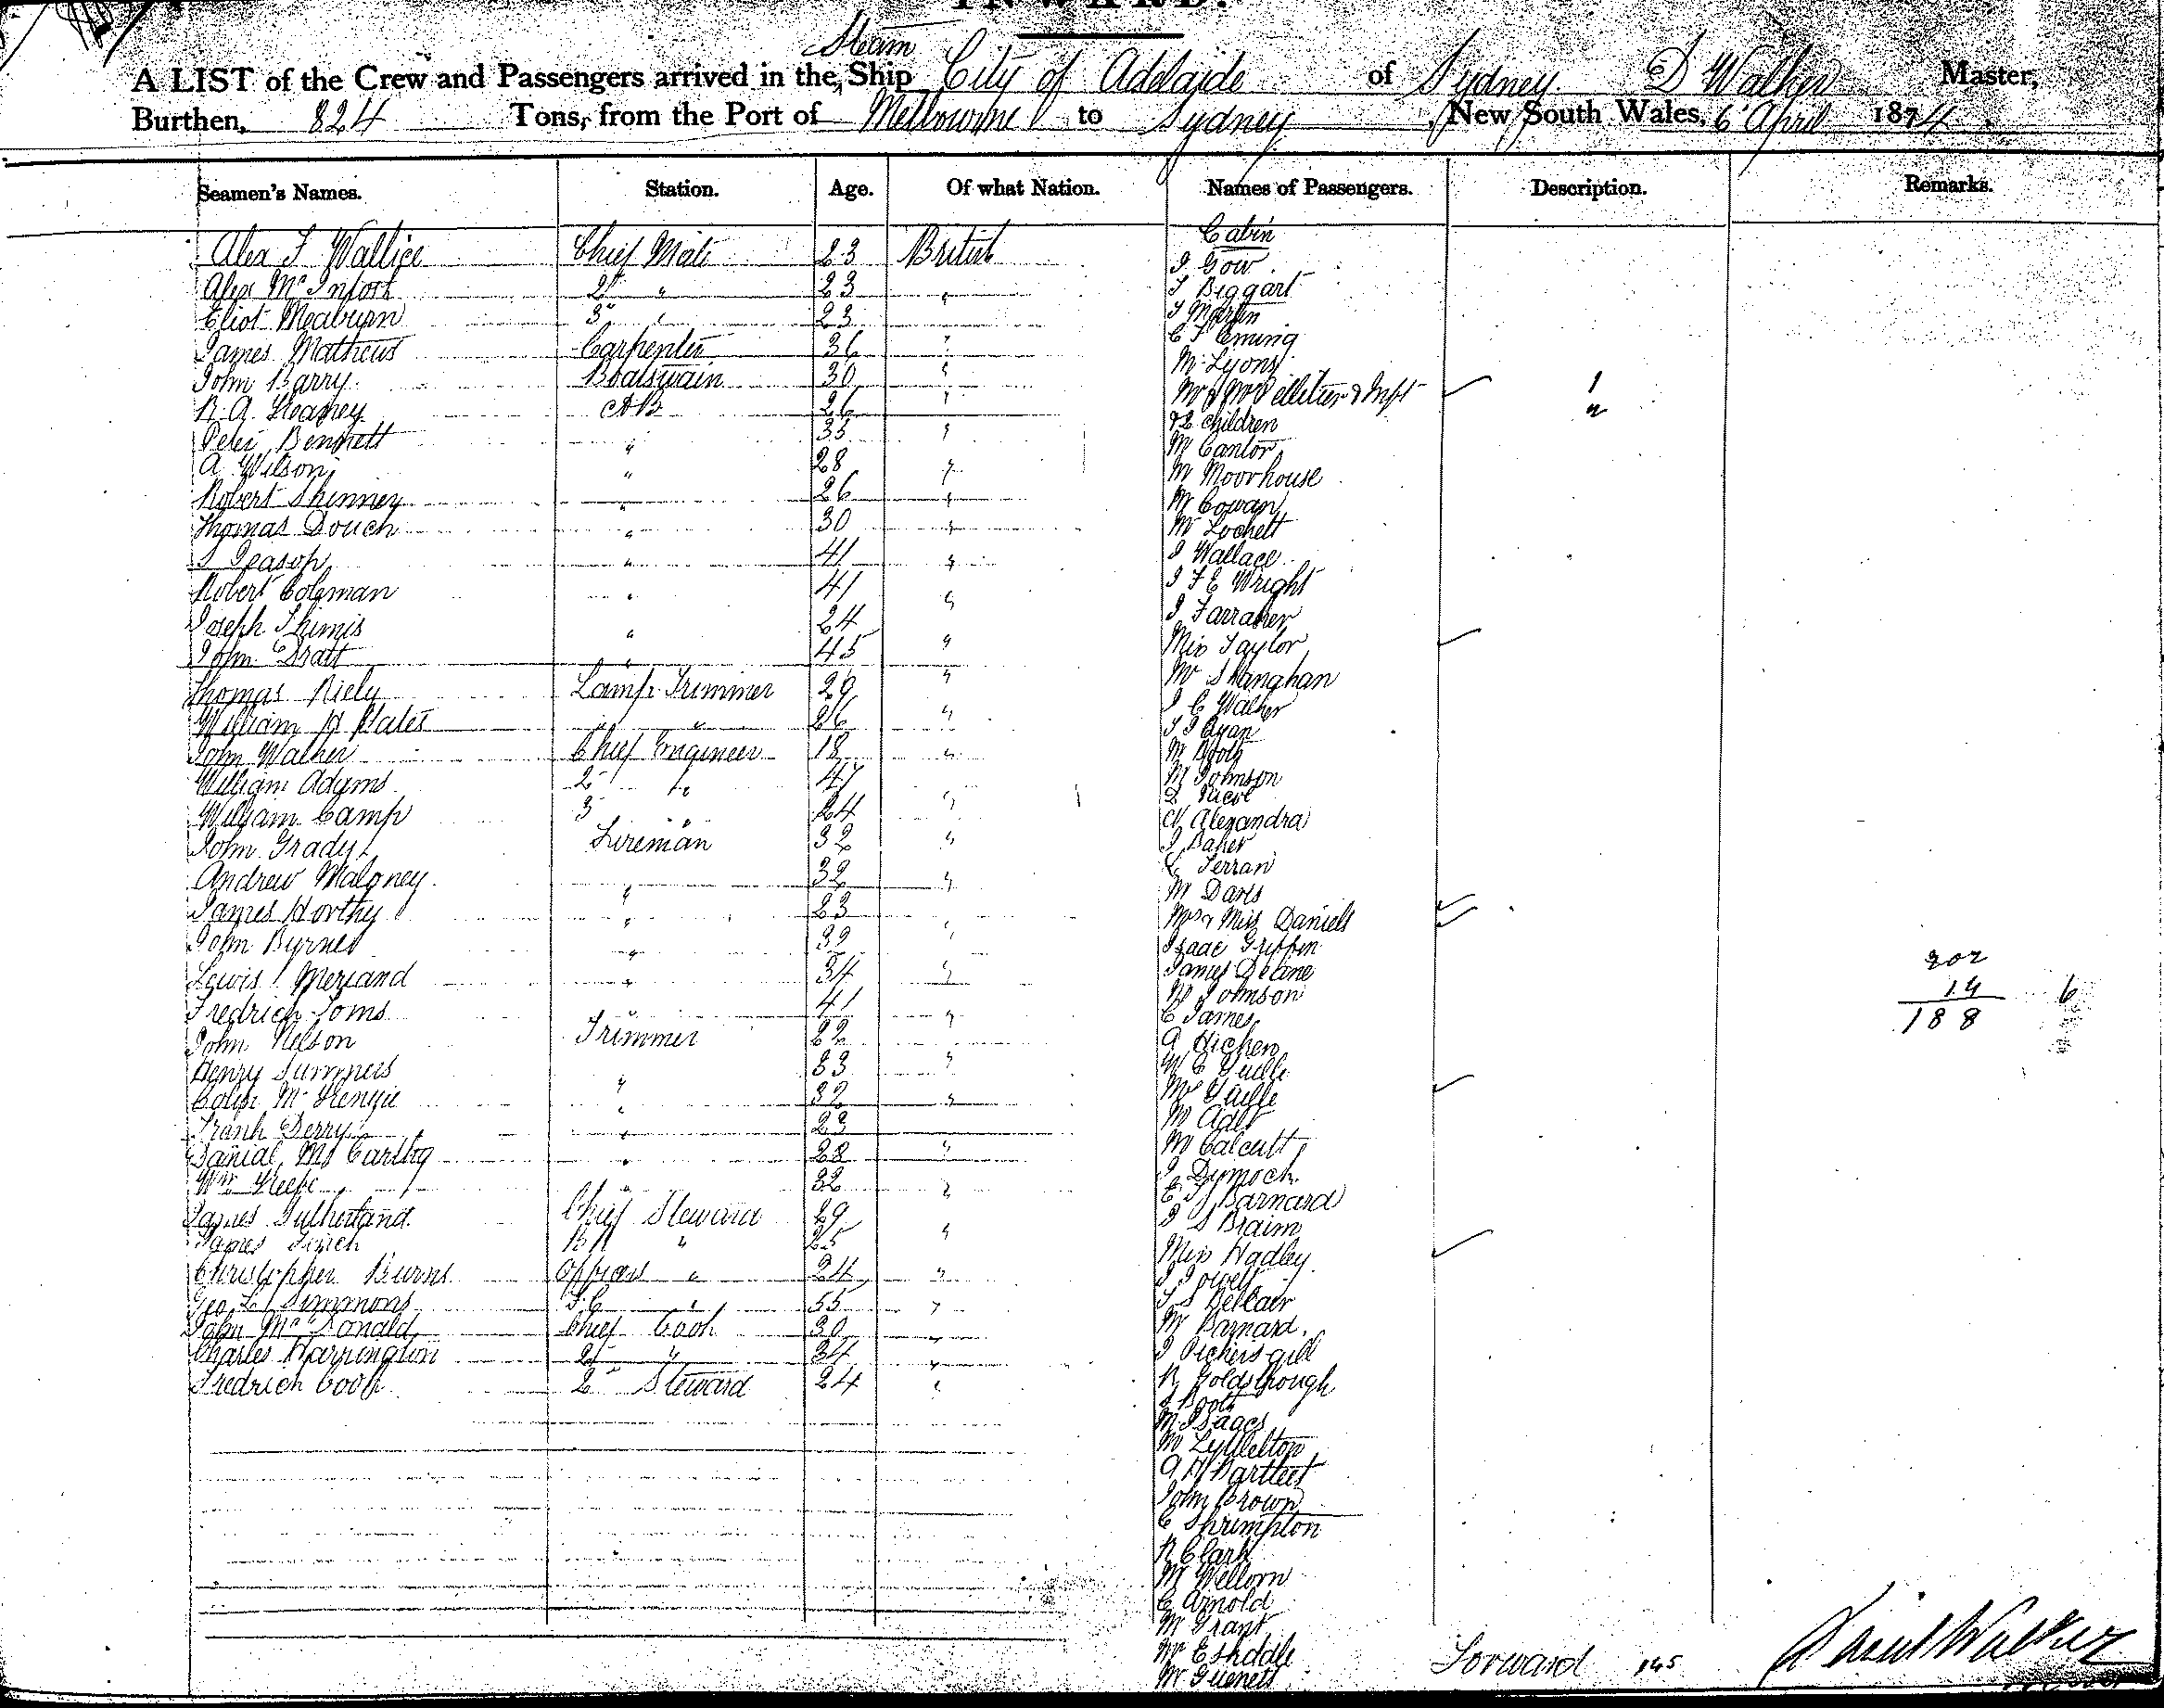 INWARD.
Steam
A LIST of the Crew and Passengers arrived in the Ship City of Adelaide of Sydney D Walker Master,
Burthen, 824 Tons, from the Port of Melbourne to Sydney, New South Wales, 6 April 1874
Seamen's Names. Station. Age. Of what Nation. Names of Passengers. Description. Remarks.
Cabin
Alex F Wallice Chief Mate 23 British J Gow
Alex McIntosh 2d " 23 " T Biggart
Eliot Meaburn 3d " 23 T Martin
James Mathews Carpenter 36 " C Fleming
John Barry Boatswain 30 " M Lyons
R. A. Kearney AB 26 " Mr & Mrs Pelletier & Inft 1
Peter Bennett " 35 " & 2 Children
M Cantor
A Wilson " 28 " M Moorhouse
Robert Skinney " 26 " M Cowan
Thomas Douch " 30 " Mr Lockett
" 41 " J Wallace
Robert Coleman " 41 " J F E Wright
Joseph " 24 J Farraher
John Pratt " 45 " Miss Taylor
Thomas Riely Lamp Trimmer 29 " Mr Shanghan
William H " " 26 " J C Walker
T J Ryan
John Walker Chief Engineer 18 " M Booth
William Adams 2d " 47 M Johnson
William Camp 3 " 24 " Alexandra
John Grady Fireman 32 " J Baker
Ferran
Andrew Maloney " 32 " M Davis
James Worthy " 23 " Mrs & Miss Daniels
John Byrnes " 39 " Isaac Griffin
202
Lewis " 34 " James Delane
14 6
Fredrich Toms " 41 " Johnson
188
C James
John Nelson Trimmer 22 A Hichen
Henry Summers " 33 "
Colin McKenzie " 32 "
Frank Derry " 23 M Adet
Danial McCarthy " 28 " M Calcutt
Wm Keefe " 32 " J Dymock
James Sutherland Chief Steward 29 E J Barnard
J S Braim
James " 25 " Miss Hadley
Christopher Burns " 24 " J Jowett
Geo L Simmons F.C " 55 " T S Bellair
John McDonald Chief Cook 30 " M Barnard
Charles Harrington 2d " 34 " J Pickersgill
Fredrich Cook 2d Steward 24 " R Goldsbrough
J Booth
M Isaacs
M Lyttleton
A H Bartleet
John Brown
C Shrimpton
R Clark
M Wellorn
C Arnold
M Grant
Forward 145